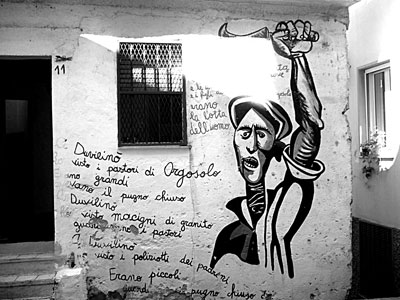 11
e le
e i figli
erano
la lotta
dell'uomo
Duvilinò
visto i pastori di Orgosolo
no grandi
vano il pugno chiuso
Duvilinò
visto macigni di granito
i pastori
Duvilinò
visto i poliziotti dei padroni
Erano piccoli
il pugno chiuso